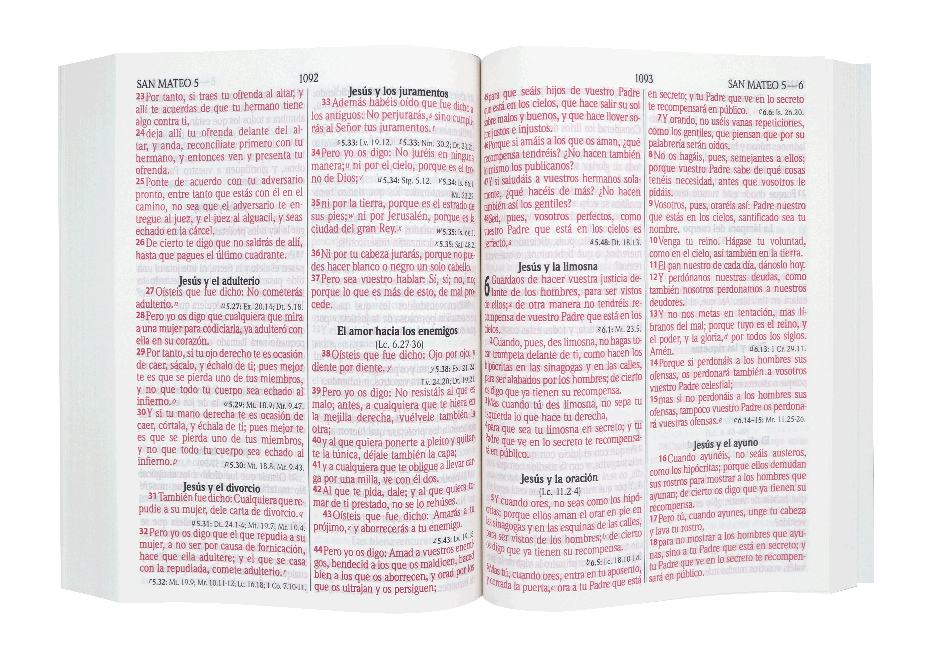 SAN MATEO 5
1092
23Por tanto, si traes tu ofrenda al altar, y
allí te acuerdas de que tu hermano tiene
algo contra ti,
24deja allí tu ofrenda delante del al-
tar, y anda, reconcíliate primero con tu
hermano, y entonces ven y presenta tu
ofrenda.
25Ponte de acuerdo con tu adversario
pronto, entre tanto que estás con él en el
camino, no sea que el adversario te en-
tregue al juez, y el juez al alguacil, y seas
echado en la cárcel.
26De cierto te digo que no saldrás de allí,
hasta que pagues el último cuadrante.
Jesús y el adulterio
27Oísteis que fue dicho: No cometerás
adulterio.
5.27: Ex. 20.14; Dt. 5.18.
28Pero yo os digo que cualquiera que mira
a una mujer para codiciarla, ya adulteró con
ella en su corazón.
29Por tanto, si tu ojo derecho te es ocasión
de caer, sácalo, y échalo de ti; pues mejor
te es que se pierda uno de tus miembros,
y no que todo tu cuerpo sea echado al
infierno.
5.29: Mt. 18.9; Mr. 9.47.
30Y si tu mano derecha te es ocasión de
caer, córtala, y échala de ti; pues mejor te
es que se pierda uno de tus miembros,
y no que todo tu cuerpo sea echado al
infierno.
5.30: Mt. 18.8; Mr. 9.43.
Jesús y el divorcio
31También fue dicho: Cualquiera que re-
pudie a su mujer, dele carta de divorcio.
5.31: Dt. 24.1-4; Mt. 19.7; Mr. 10.4.
32Pero yo os digo que el que repudia a su
mujer, a no ser por causa de fornicación,
hace que ella adultere; y el que se casa
con la repudiada, comete adulterio.
5.32: Mt. 19.9; Mr. 10.11-12; Lc. 16.18; 1 Co. 7.10-11.
Jesús y los juramentos
33Además habéis oído que fue dicho a
los antiguos: No perjurarás, sino cumpli-
rás al Señor tus juramentos.
5.33: Lv. 19.12. 5.33: Nm. 30.2; Dt. 23.21.
34Pero yo os digo: No juréis en ninguna
manera; ni por el cielo, porque es el tro-
no de Dios;
5.34: Stg. 5.12. 5.34: Is. 66.1
Mt. 23.22.
35ni por la tierra, porque es el estrado de
sus pies; ni por Jerusalén, porque es la
ciudad del gran Rey.
5.35: Is. 66.1.
5.35: Sal. 48.2.
36Ni por tu cabeza jurarás, porque no pue-
des hacer blanco o negro un solo cabello.
37Pero sea vuestro hablar: Sí, sí; no, no;
porque lo que es más de esto, de mal pro-
cede.
El amor hacia los enemigos
(Lc. 6.27-36)
38Oísteis que fue dicho: Ojo por ojo, y
diente por diente.
5.38: Ex. 21.24
Lv. 24.20; Dt. 19.21.
39Pero yo os digo: No resistáis al que es
malo; antes, a cualquiera que te hiera en
la mejilla derecha, vuélvele también la
otra;
40y al que quiera ponerte a pleito y quitar-
te la túnica, déjale también la capa;
41y a cualquiera que te obligue a llevar car-
ga por una milla, ve con él dos.
42Al que te pida, dale; y al que quiera to-
mar de ti prestado, no se lo rehúses.
43Oísteis que fue dicho: Amarás a tu
prójimo, y aborrecerás a tu enemigo.
5.43: Lv. 19.18
44Pero yo os digo: Amad a vuestros enemi-
gos, bendecid a los que os maldicen, haced
bien a los que os aborrecen, y orad por los
que os ultrajan y os persiguen;
1093
SAN MATEO 5—6
para que seáis hijos de vuestro Padre
que está en los cielos, que hace salir su sol
sobre malos y buenos, y que hace llover so-
bre justos e injustos.
Porque si amáis a los que os aman, ¿qué
recompensa tendréis? ¿No hacen también
lo mismo los publicanos?
Y si saludáis a vuestros hermanos sola-
mente, ¿qué hacéis de más? ¿No hacen
también así los gentiles?
Sed, pues, vosotros perfectos, como
vuestro Padre que está en los cielos es
perfecto.
5.48: Dt. 18.13.
Jesús y la limosna
6 Guardaos de hacer vuestra justicia de-
lante de los hombres, para ser vistos
de ellos; de otra manera no tendréis re-
compensa de vuestro Padre que está en los
cielos.
6.1: Mt. 23.5.
2Cuando, pues, des limosna, no hagas to-
car trompeta delante de ti, como hacen los
hipócritas en las sinagogas y en las calles,
para ser alabados por los hombres; de cierto
os digo que ya tienen su recompensa.
3Mas cuando tú des limosna, no sepa tu
izquierda lo que hace tu derecha,
4para que sea tu limosna en secreto; y tu
Padre que ve en lo secreto te recompensa-
rá en público.
Jesús y la oración
(Lc. 11.2-4)
5Y cuando ores, no seas como los hipó-
critas; porque ellos aman el orar en pie en
las sinagogas y en las esquinas de las calles,
para ser vistos de los hombres; de cierto
os digo que ya tienen su recompensa.
6.5: Lc. 18.10-14.
Mas tú, cuando ores, entra en tu aposento,
y cerrada la puerta, ora a tu Padre que está
en secreto; y tu Padre que ve en lo secreto
te recompensará en público.
6.6: Is. 26.20.
7Y orando, no uséis vanas repeticiones,
como los gentiles, que piensan que por su
palabrería serán oídos.
8No os hagáis, pues, semejantes a ellos;
porque vuestro Padre sabe de qué cosas
tenéis necesidad, antes que vosotros le
pidáis.
9Vosotros, pues, oraréis así: Padre nuestro
que estás en los cielos, santificado sea tu
nombre.
10Venga tu reino. Hágase tu voluntad,
como en el cielo, así también en la tierra.
11El pan nuestro de cada día, dánoslo hoy.
12Y perdónanos nuestras deudas, como
también nosotros perdonamos a nuestros
deudores.
13Y no nos metas en tentación, mas lí-
branos del mal; porque tuyo es el reino, y
el poder, y la gloria, por todos los siglos.
Amén.
6.13: 1 Cr. 29.11.
14Porque si perdonáis a los hombres sus
ofensas, os perdonará también a vosotros
vuestro Padre celestial;
15mas si no perdonáis a los hombres sus
ofensas, tampoco vuestro Padre os perdona-
rá vuestras ofensas.
6.14-15: Mr. 11.25-26.
Jesús y el ayuno
16Cuando ayunéis, no seáis austeros,
como los hipócritas; porque ellos demudan
sus rostros para mostrar a los hombres que
ayunan; de cierto os digo que ya tienen su
recompensa.
17Pero tú, cuando ayunes, unge tu cabeza
y lava tu rostro,
18para no mostrar a los hombres que ayu-
nas, sino a tu Padre que está en secreto; y
tu Padre que ve en lo secreto te recompen-
sará en público.